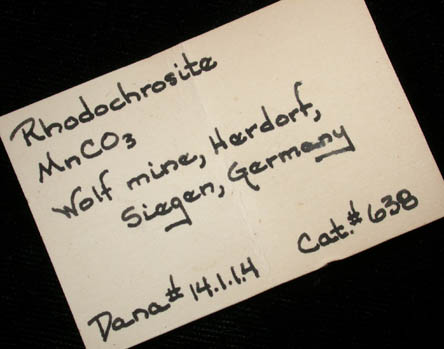 Rhodochrosite
MnCO₃
Wolf mine, Herdorf,
Siegen, Germany
Dana# 14.1.1.4 Cat.# 638